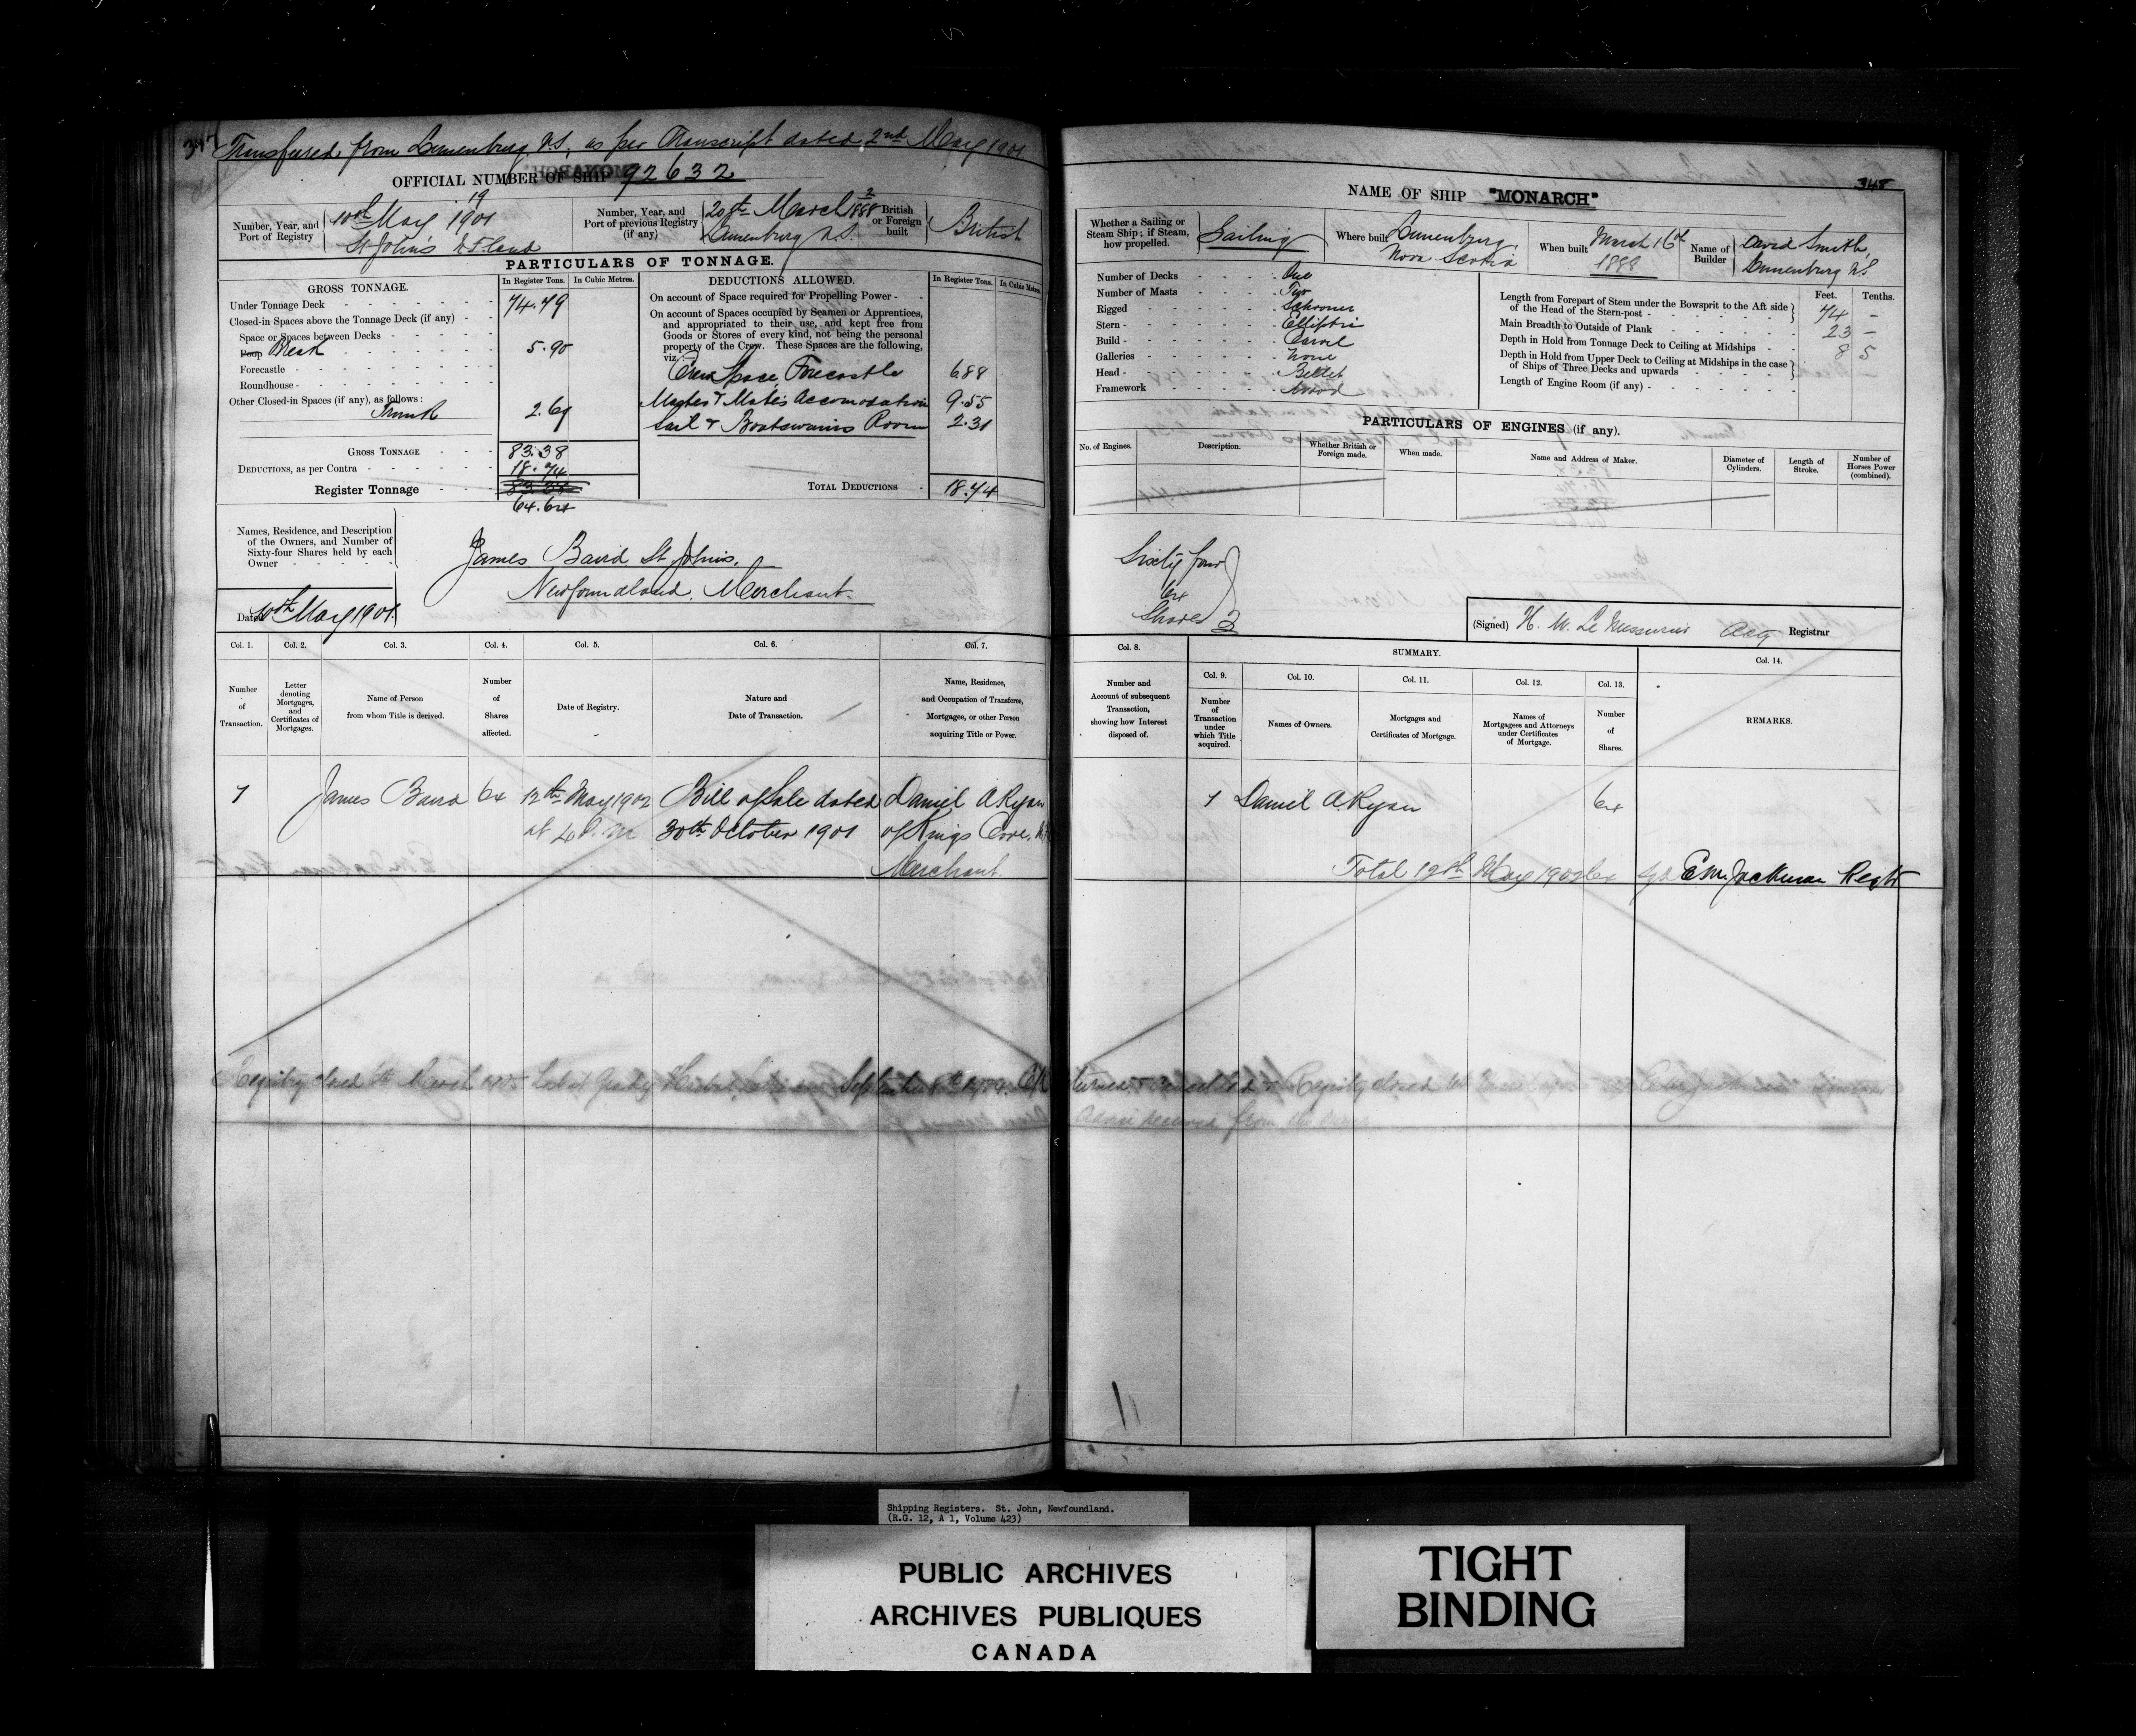 347
Transferred from Lunenburg N.S. as per Transcript dated 2nd May 1901
OFFICIAL NUMBER OF SHIP 92632
Number, Year, and Port of Registry
19
10th May 1901
St John's Nfland
Number, Year, and Port of previous Registry (if any)
2
20th March 1888
Lunenburg N.S.
British or Foreign built
British
PARTICULARS OF TONNAGE.
GROSS TONNAGE.
In Register Tons.
In Cubic Metres.
Under Tonnage Deck 74.79
Closed-in Spaces above the Tonnage Deck (if any)
Space or Spaces between Decks
Poop Break 5.90
Forecastle
Roundhouse
Other Closed-in Spaces (if any), as follows:
Trunk 2.69
GROSS TONNAGE 83.38
DEDUCTIONS, as per Contra 18.74
Register Tonnage
64.64
DEDUCTIONS ALLOWED.
In Register Tons.
In Cubic Metres.
On account of Space required for Propelling Power
On account of Spaces occupied by Seamen or Apprentices,
and appropriated to their use, and kept free from
Goods or Stores of every kind, not being the personal
property of the Crew. These Spaces are the following,
viz.:
Crew Space Forecastle 6.88
Master & Mates Accomodation 9.55
Sail & Boatswains Room 2.31
TOTAL DEDUCTIONS 18.74
Names, Residence, and Description
of the Owners, and Number of
Sixty-four Shares held by each
Owner
James Baird St. Johns.
Newfoundland. Merchant.
Date 10th May 1901.
Col. 1. Col. 2. Col. 3. Col. 4. Col. 5. Col. 6. Col. 7.
Number of Transaction.
Letter denoting Mortgages, and Certificates of Mortgages.
Name of Person from whom Title is derived.
Number of Shares affected.
Date of Registry.
Nature and Date of Transaction.
Name, Residence, and Occupation of Transferee, Mortgagee, or other Person acquiring Title or Power.
1 James Baird 64 12th May 1902 Bill of Sale dated Daniel A Ryan
at 4 P.m 30th October 1901 of Kings Cove.
Merchant.
Registry closed 6th March 1905 Lost at Grady Harbor, September 8th 1904.
348
NAME OF SHIP "MONARCH"
Whether a Sailing or Steam Ship; if Steam, how propelled.
Sailing
Where built
Lunenburg,
Nova Scotia
When built
March 16th
1888
Name of Builder
David Smith,
Lunenburg N.S
Number of Decks One
Number of Masts Two
Rigged Schooner
Stern Elliptic
Build Carvel
Galleries None
Head Billet
Framework Wood
Feet. Tenths.
Length from Forepart of Stem under the Bowsprit to the Aft side
of the Head of the Stern-post 74 –
Main Breadth to Outside of Plank 23 –
Depth in Hold from Tonnage Deck to Ceiling at Midships 8 5
Depth in Hold from Upper Deck to Ceiling at Midships in the case
of Ships of Three Decks and upwards
Length of Engine Room (if any)
PARTICULARS OF ENGINES (if any).
No. of Engines.
Description.
Whether British or Foreign made.
When made.
Name and Address of Maker.
Diameter of Cylinders.
Length of Stroke.
Number of Horses Power (combined).
Sixty four
64
Shares
(Signed) H. W. Le Messurier Actg Registrar
Col. 8.
SUMMARY.
Col. 9. Col. 10. Col. 11. Col. 12. Col. 13. Col. 14.
Number and Account of subsequent Transaction, showing how Interest disposed of.
Number of Transaction under which Title acquired.
Names of Owners.
Mortgages and Certificates of Mortgage.
Names of Mortgagees and Attorneys under Certificates of Mortgage.
Number of Shares.
REMARKS.
1 Daniel A. Ryan 64
Total 12th May 1902 64 sgd E M Jackman Regtr
Registry closed
Advice received from the
Shipping Registers. St. John, Newfoundland.
(R.G. 12, A 1, Volume 423)
PUBLIC ARCHIVES
ARCHIVES PUBLIQUES
CANADA
TIGHT
BINDING